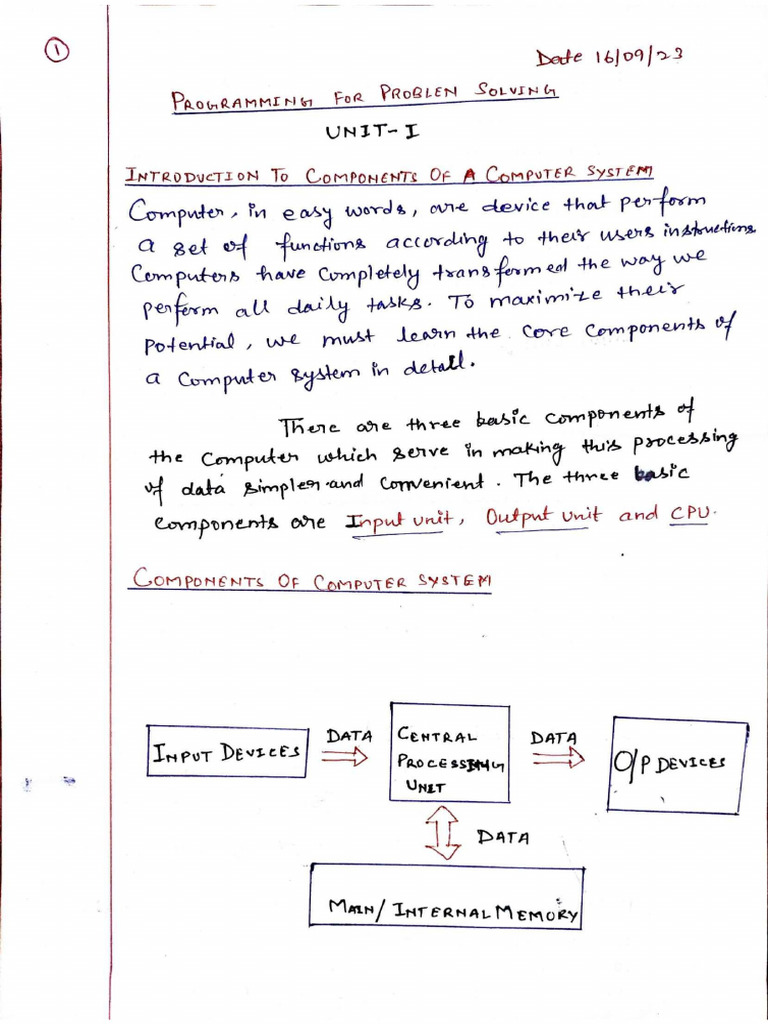 1
Date 16/09/23
PROGRAMMING FOR PROBLEN SOLVING
UNIT-I
INTRODUCTION TO COMPONENTS OF A COMPUTER SYSTEM
Computer, in easy words, are device that perform
a set of functions according to their users instructions.
Computers have completely transformed the way we
perform all daily tasks. To maximize their
potential, we must learn the core components of
a computer system in detail.
There are three basic components of
the computer which serve in making this processing
of data simpler and convenient. The three basic
components are Input unit, Output unit and CPU.
COMPONENTS OF COMPUTER SYSTEM
INPUT DEVICES
DATA
CENTRAL
PROCESSING
UNIT
DATA
O/P DEVICES
DATA
MAIN/ INTERNAL MEMORY